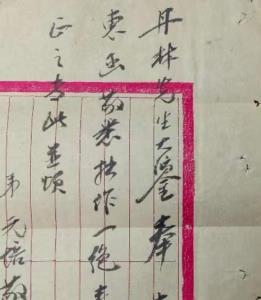 丹林先生大鑒奉
惠函敬悉拙作一絕
正之專此並頌
弟元培敬